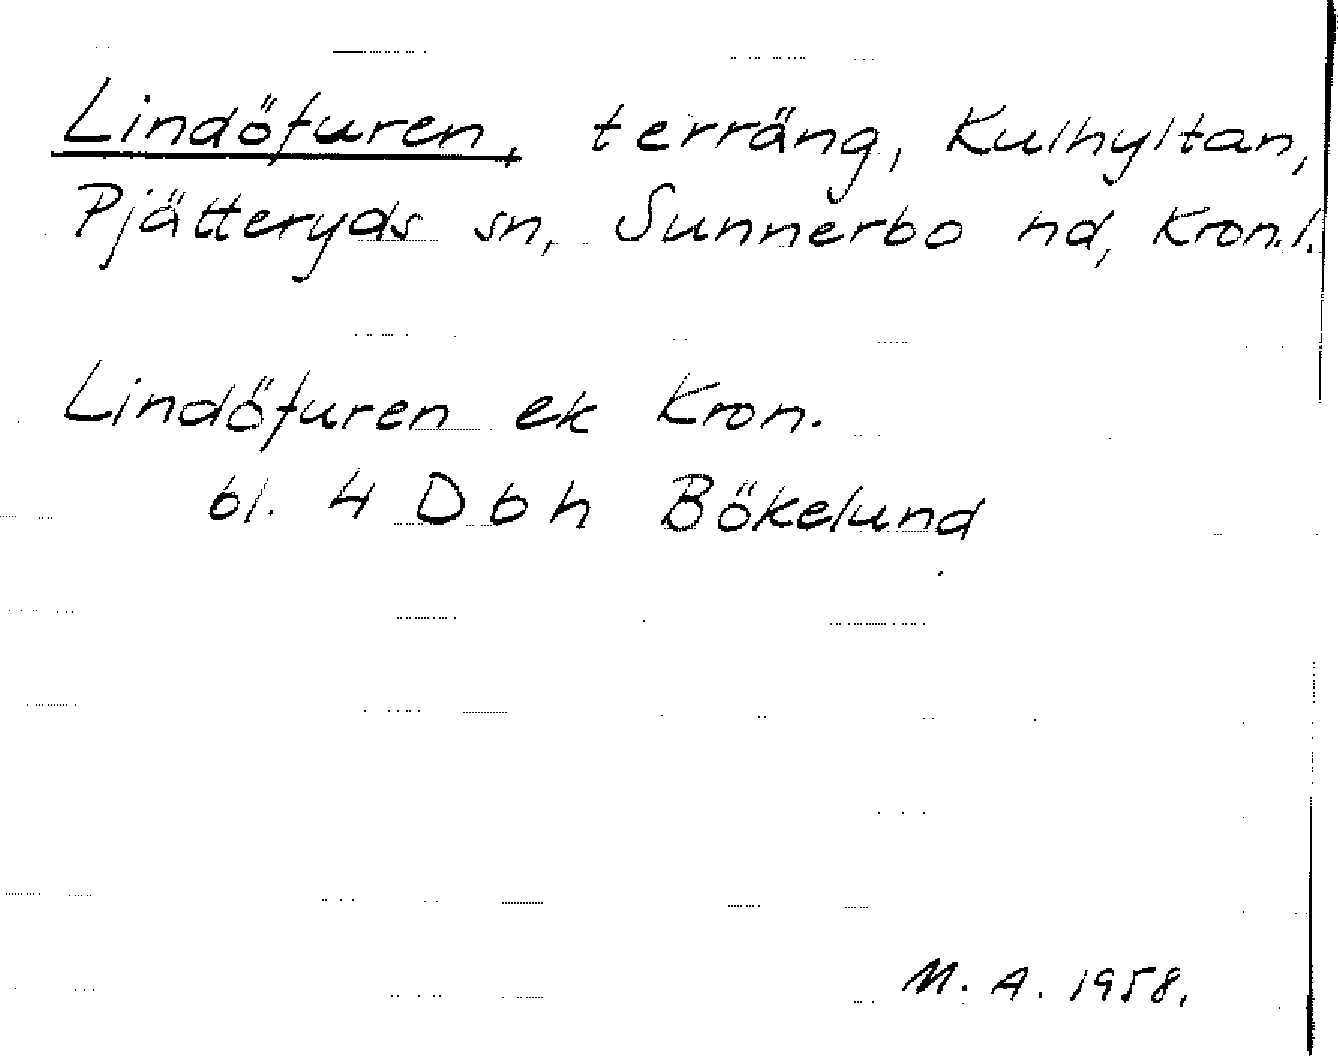 Lindöfuren, terräng, Kulhyltan,
Pjätteryds sn, Sunnerbo hd, Kron.l.
Lindöfuren ek Kron.
bl. 4 D b h Bökelund
M. A. 1958.